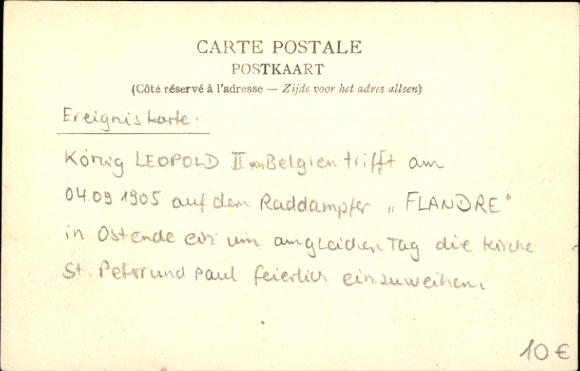 CARTE POSTALE
POSTKAART
(Côté réservé à l'adresse — Zijde voor het adres alleen)
Ereigniskarte.
König LEOPOLD II von Belgien trifft am
04.09 1905 auf dem Raddampfer „FLANDRE"
in Ostende ein um am gleichen Tag die Kirche
St. Peter und Paul feierlich einzuweihen.
10 €